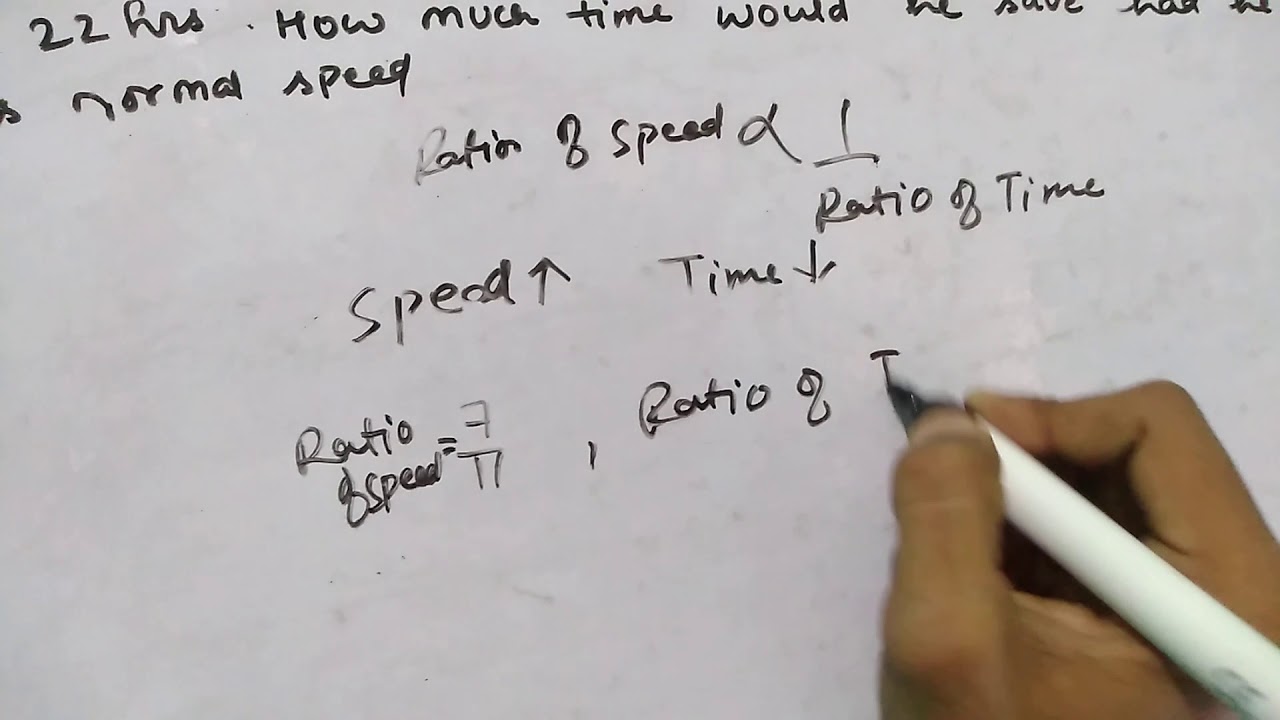 22 hrs. How much time would he save had he
s normal speed
Ratio of speed ∝ 1
Ratio of Time
Speed ↑ Time ↓
Ratio of speed = 7/11 , Ratio of T